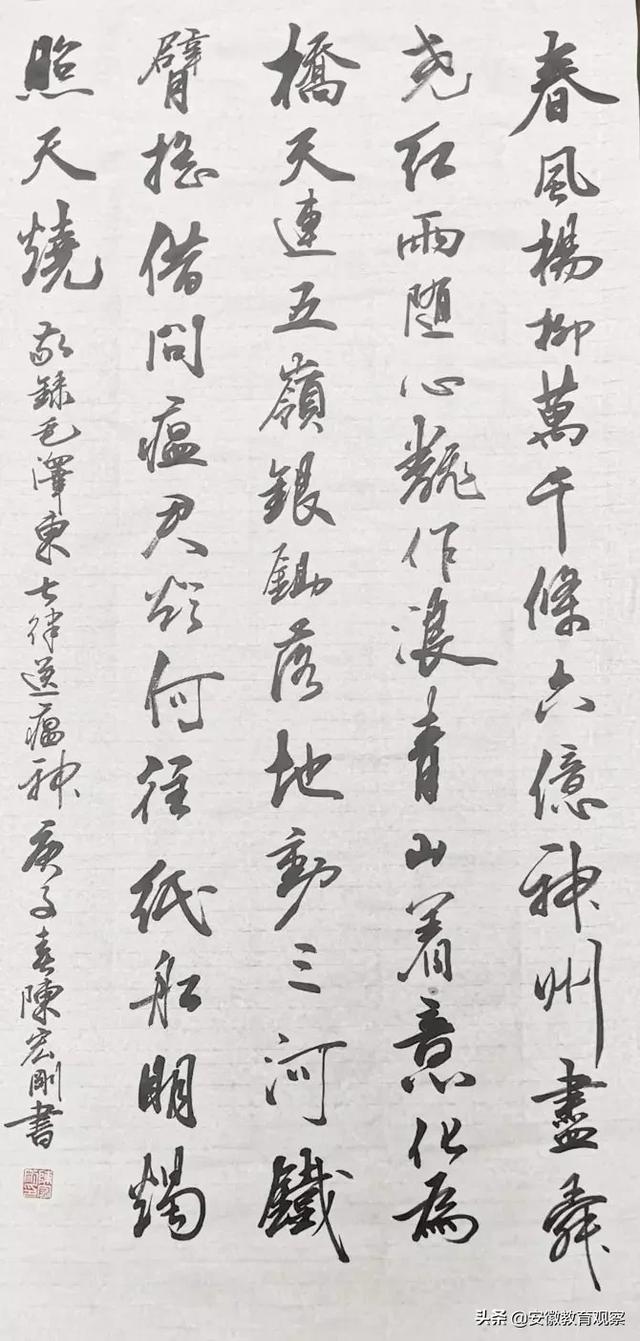 春風楊柳萬千條六億神州盡舜
尧紅雨随心翻作浪青山着意化為
橋天連五嶺銀鋤落地動三河鐵
臂摇借問瘟君欲何往紙船明燭
照天燒 敬録毛澤東七律送瘟神庚子春陳宏剛書
头条 @安徽教育观察